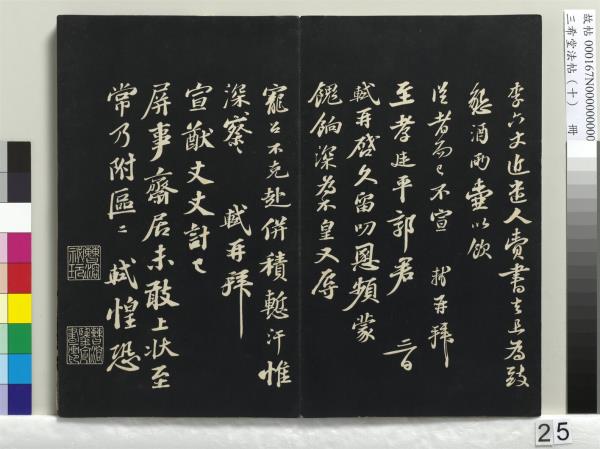 李六丈近遣人賫書去且為致
懇酒兩壺以飲
從者而已不宣 軾再拜
至孝廷平郭君 二日
軾再啟久留叨恩頻蒙
餽餉深為不皇又辱
寵召不克赴併積慙汗惟
深察 軾再拜
宣猷丈丈計已
屏事齋居未敢上狀至
常乃附區區 軾惶恐
故帖 000167N000000000
三希堂法帖(十) 冊
25